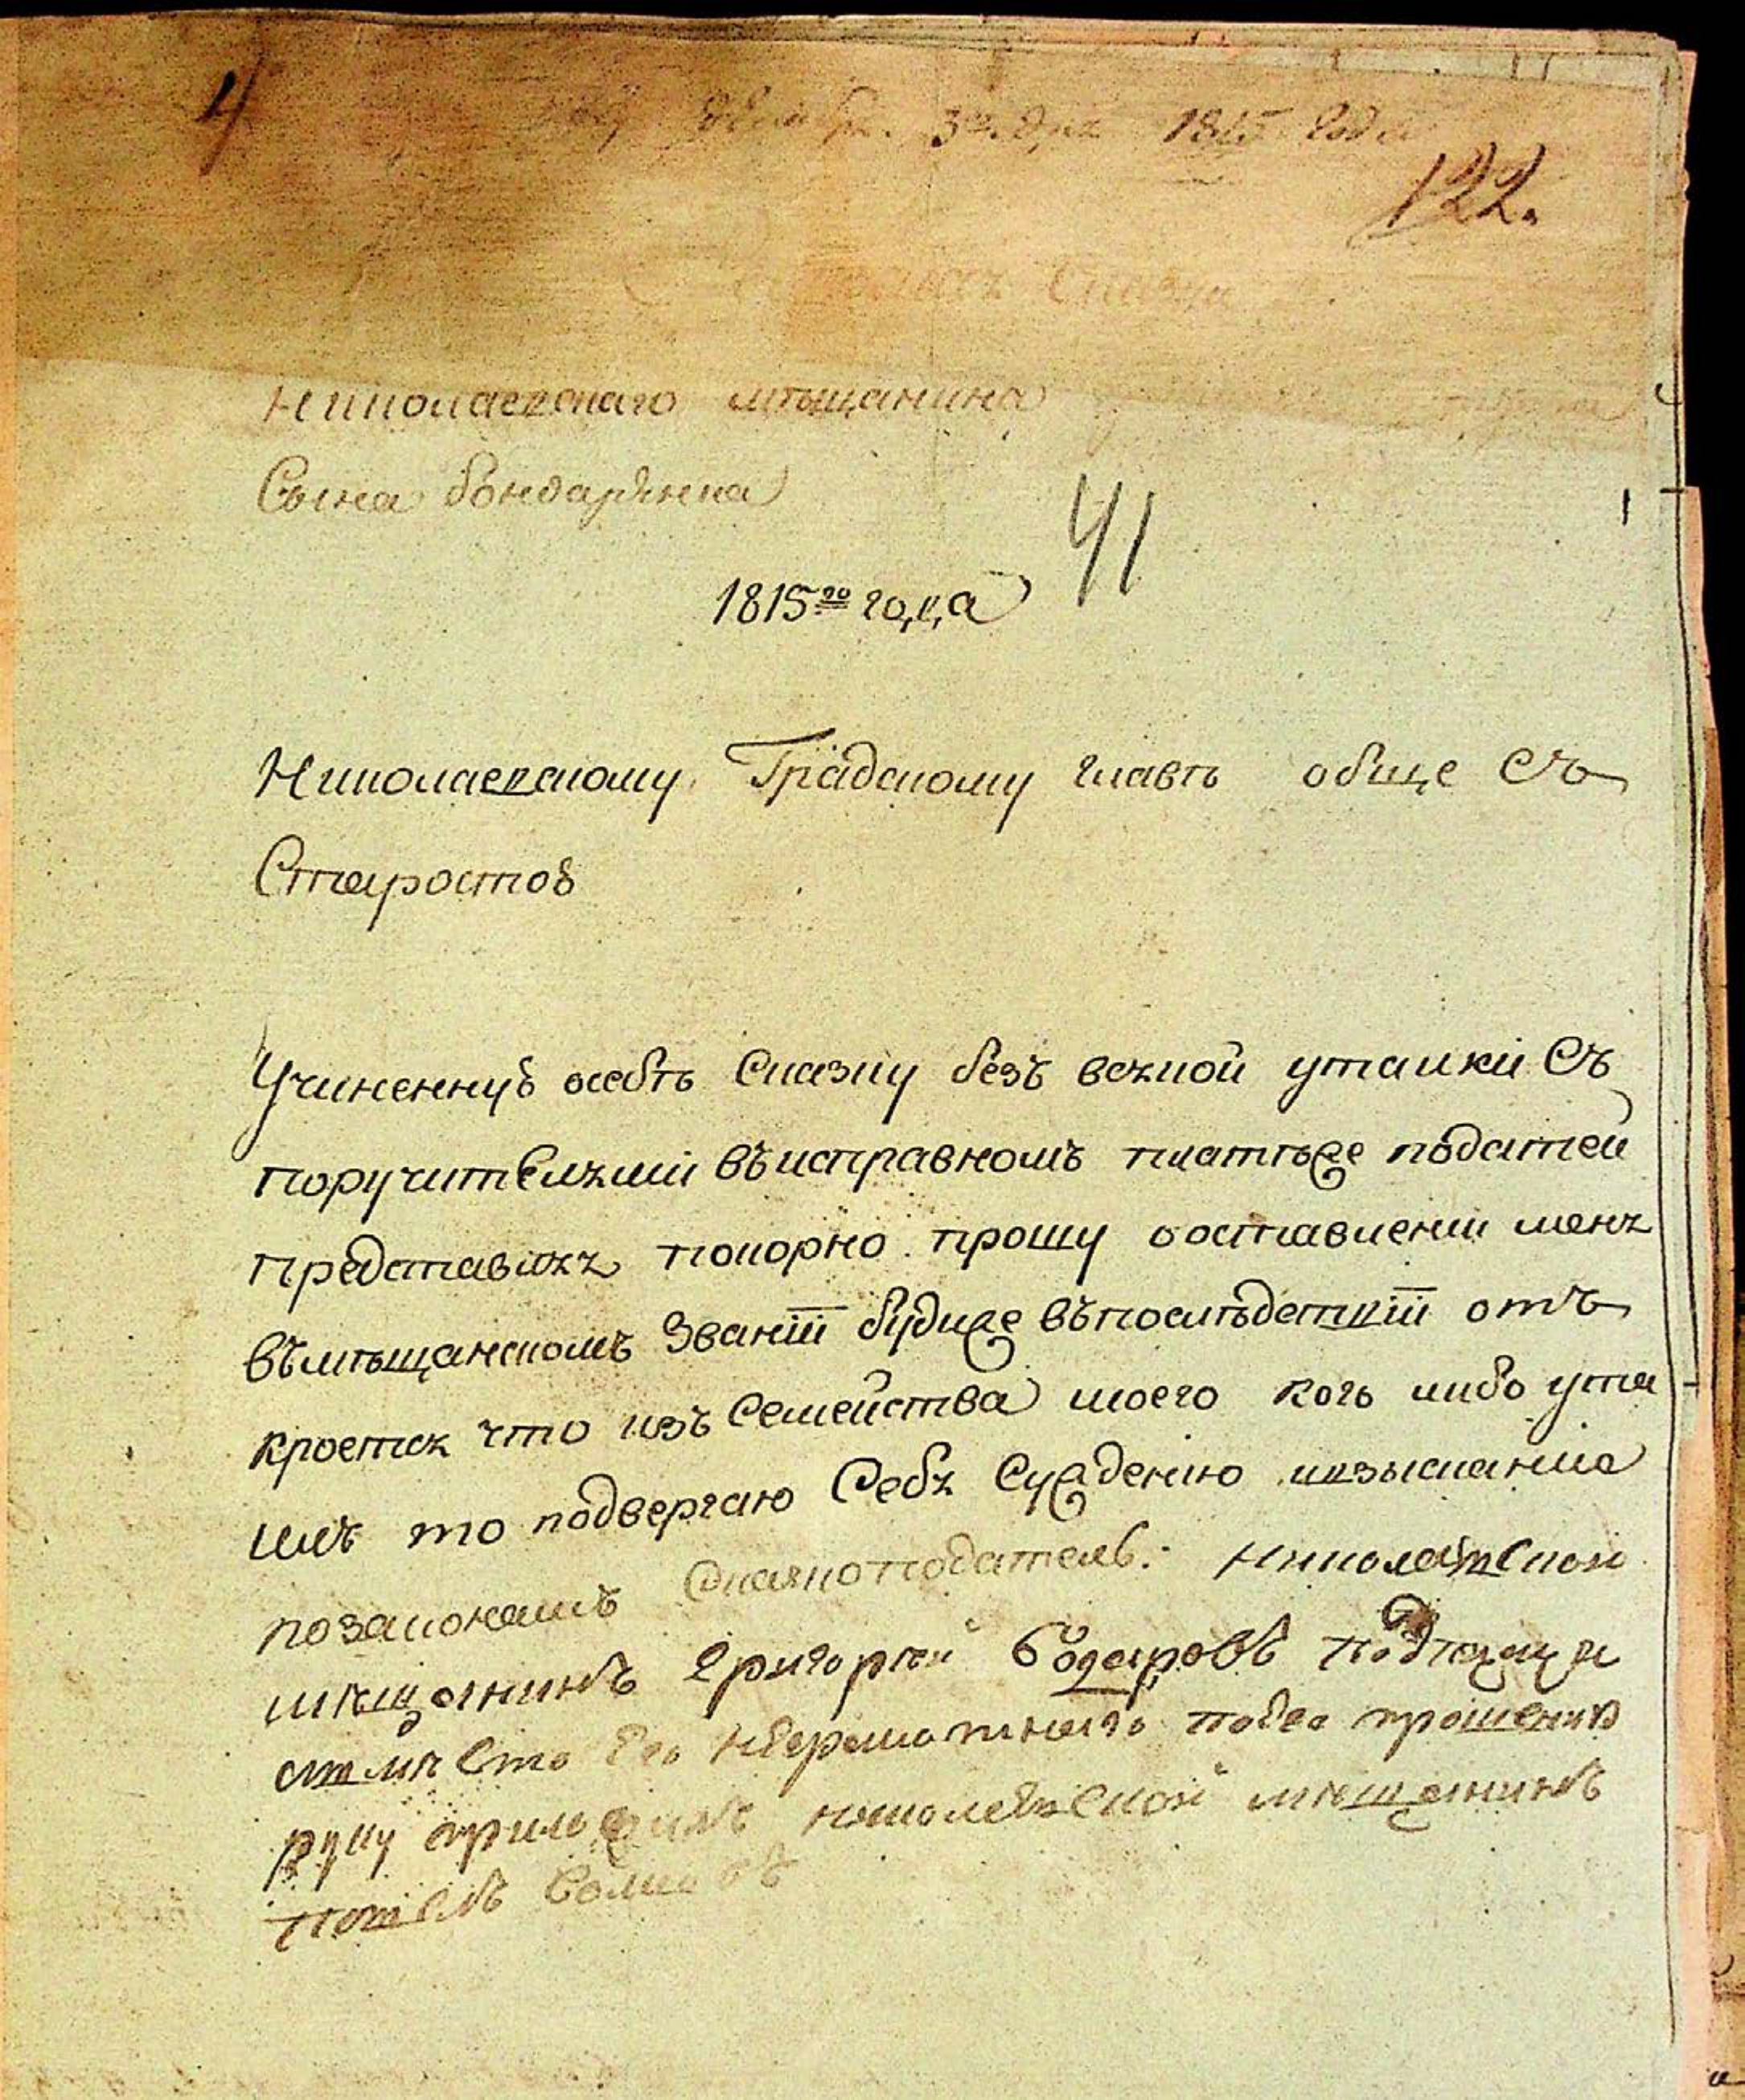 4
3го дня 1815 года
122.
Николаевскаго мѣщанина
Сына бондаренка
41
1815го года
Николаевскому Градскому главѣ обще Съ
Старостоѵ
Учиненнуѵ осебѣ Сказку безъ всякой утаики Съ
поручителями въисправномъ платѣже податей
представляя покорно прошу ооставлении меня
вмѣщанскомъ Званіи будиже въпослѣдствіи от
кроется что изъ Семейства моего кого либо ута
илъ то подвергаю Себя Суждению ивзысканию
позаконамъ Сказкоподатель: Николаевской
мѣщанинъ Григорей
вмѣсто его неграмотнаго прошению
руку приложилъ николаевской мѣщанинъ